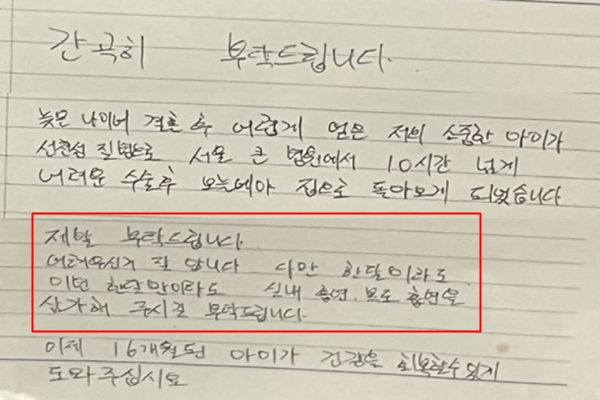 간곡히 부탁드립니다.
늦은 나이에 결혼 후 어렵게 얻은 저의 소중한 아이가
선천성 질병으로 서울 큰 병원에서 10시간 넘게
어려운 수술후 오늘에야 집으로 돌아오게 되었습니다
제발 부탁드립니다
어려우신거 잘 압니다 다만 한달이라도
이번 한달만이라도 실내 흡연. 보도 흡연을
삼가해 주시길 부탁드립니다.
이제 16개월된 아이가 건강을 회복할수 있게
도와주십시요